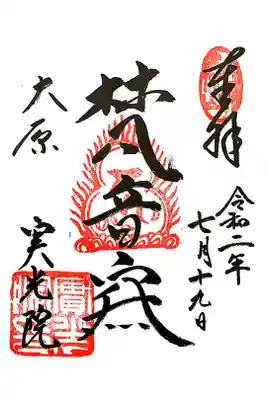 奉拝
令和二年
七月十九日
梵音
大原
実光院